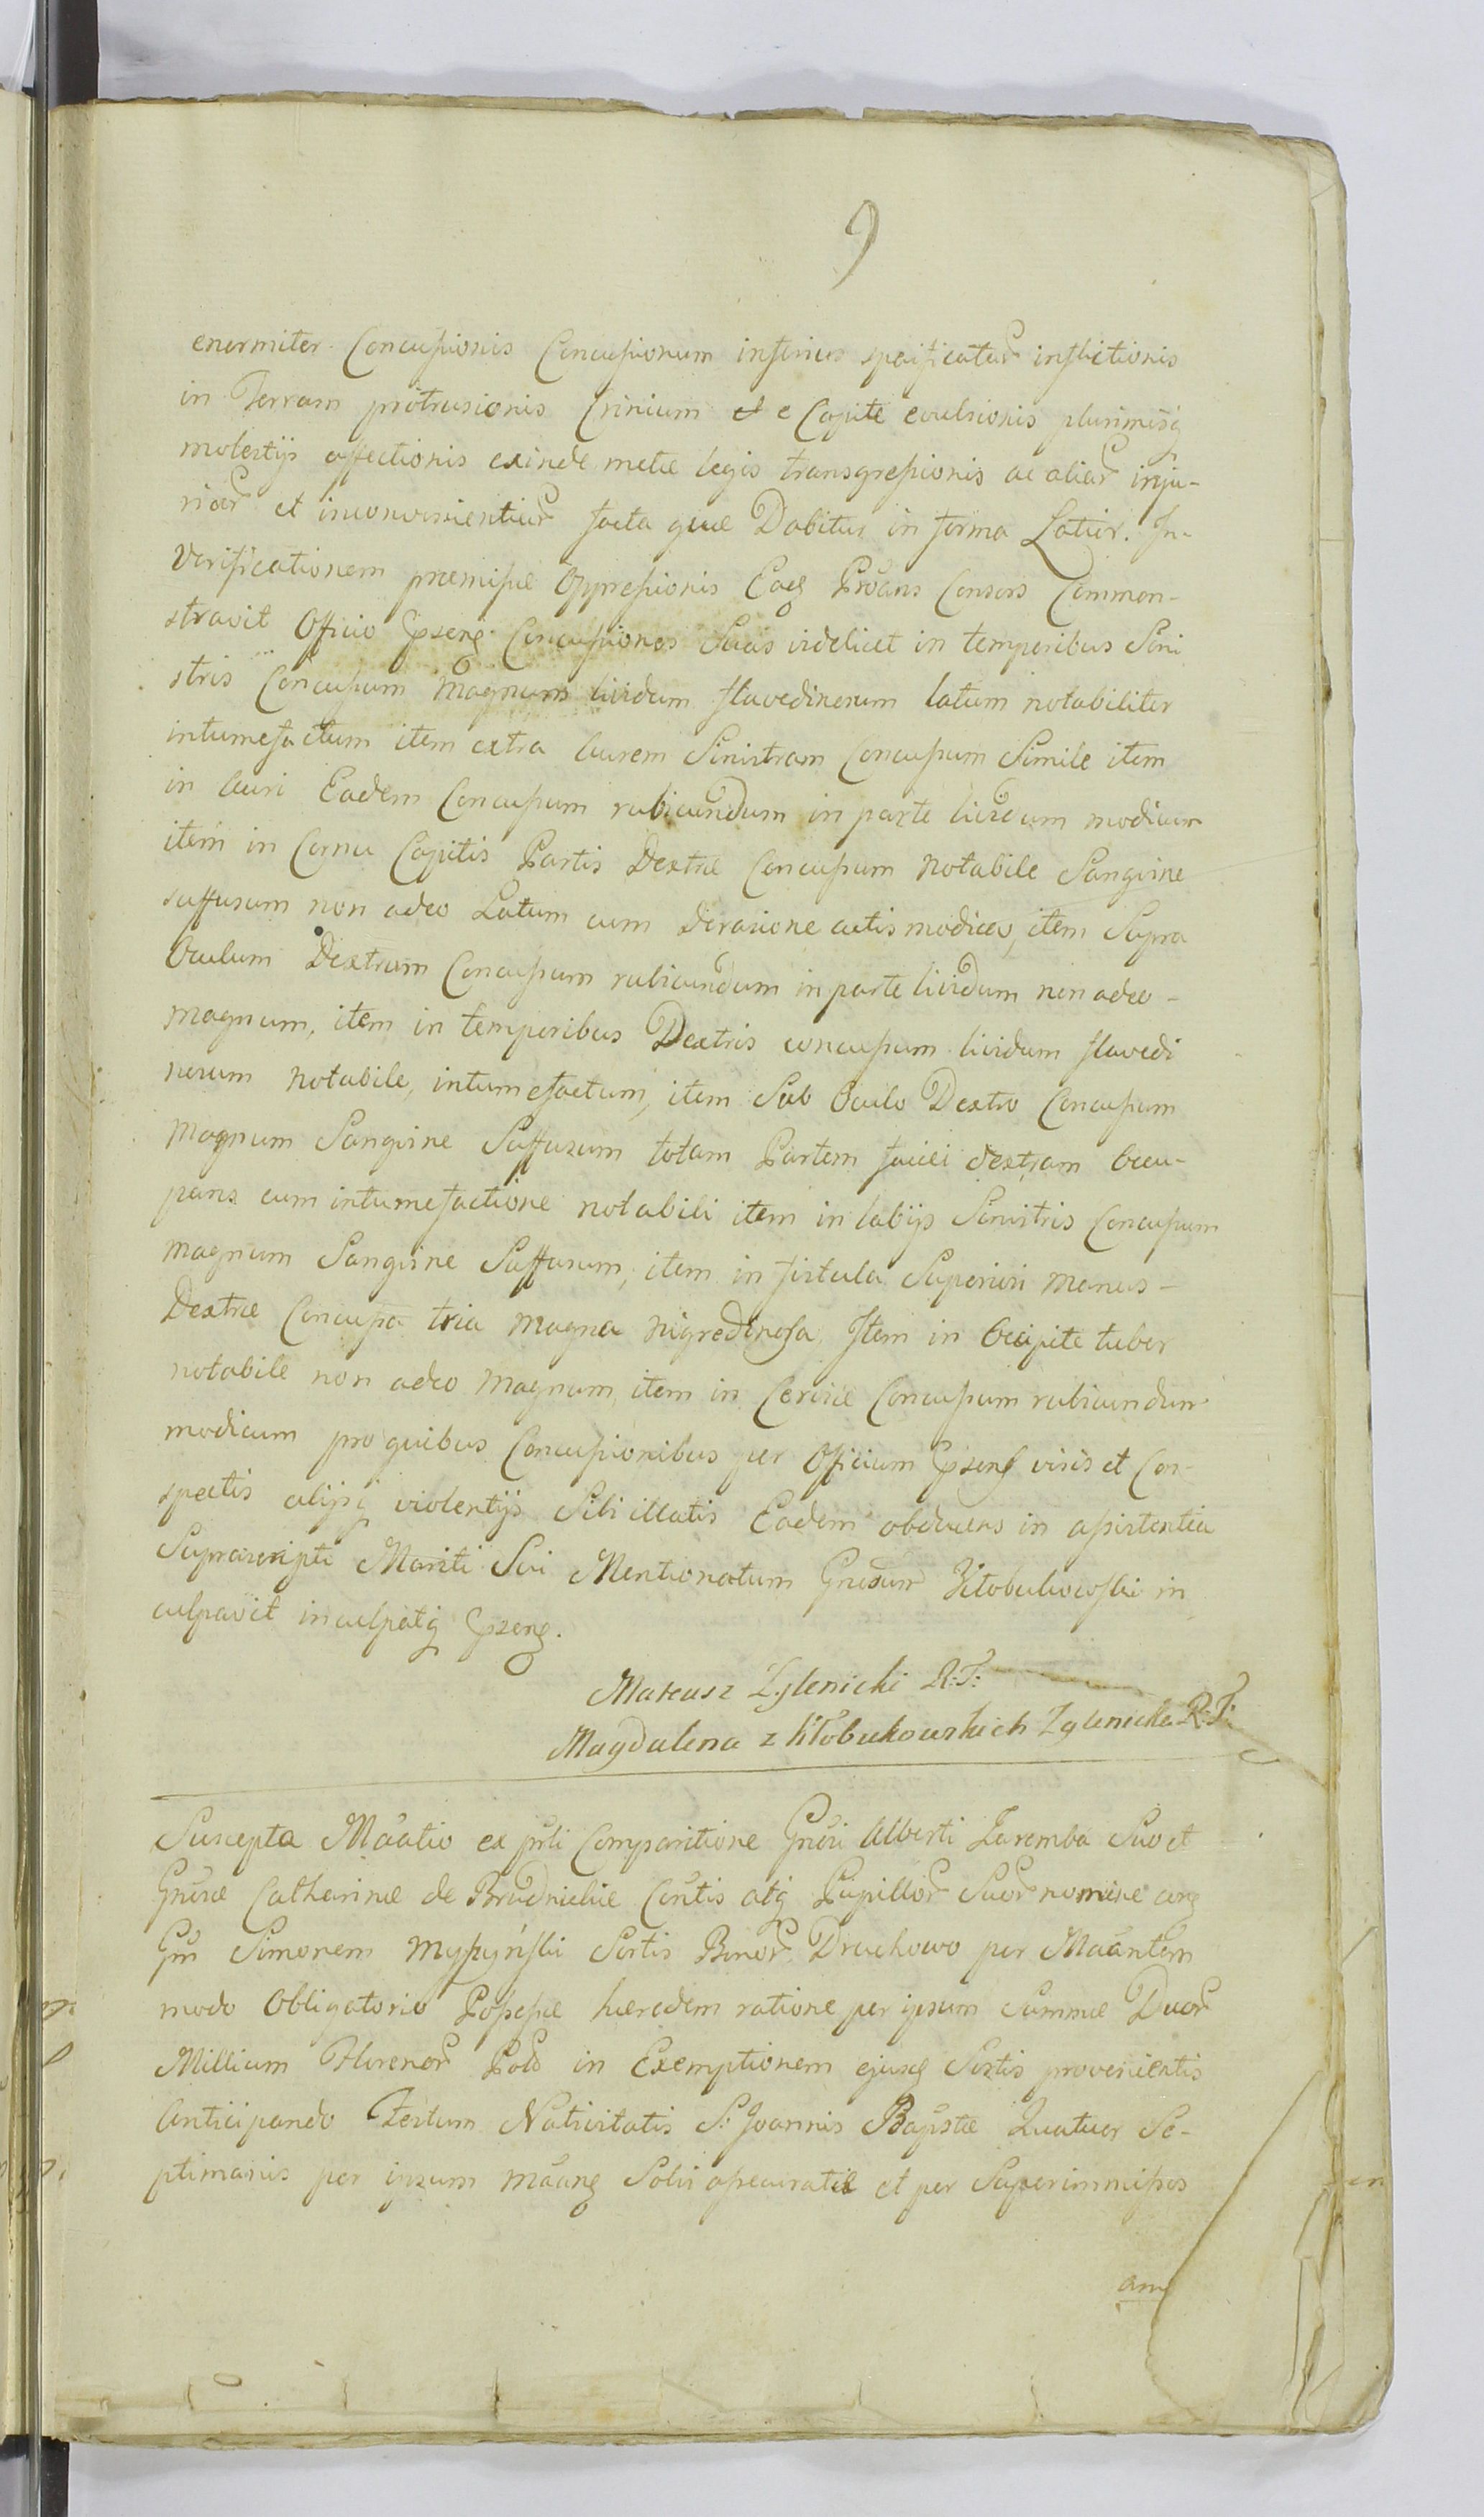 9
enormiter Concussionis Concussionum inferius specificatar inflictionis
in Terram protrusionis Crinium et e Capite evulsionis plurimisq
molestijs affectionis exinde metae legis transgressionis ac aliar inju-
riar et inconvenientiar facta quae Dabitur in forma Latior. In-
Verificationem praemissae Oppressionis Eadq Proans Consors Common-
stravit Officio Pseng Concussiones Suas videlicet in temporibus Sini
stris Concussum Magnum lividum flavedinorum latum notabiliter
intumefactum item extra Aurem Sinistram Concussum Simile item
in Auri Eadem Concussum rubicundum in parte lividum modicum
item in Cornu Capitis Partis Dextrae Concussum Notabile Sanguine
suffusum non adeo Latum cum Derasione cutis modica, item Supra
Oculum Dextrum Concussum rubicundum in parte lividum non adeo-
magnum, item in temporibus Dextris concussum lividum flavedi
norum notabile, intumefactum, item Sub Oculo Dextro Concussum
Magnum Sanguine Suffusum totam Partem faciei dextram Occu-
pans cum intumefactione notabili item in labijs Sinistris Concussum
magnum Sanguine Suffusum, item in fistula Superiori manus-
Dextrae Concussa tria magna nigredinosa, Item in Occipite tuber
notabile non adeo Magnum, item in Cervice Concussum rubicundum
modicum pro quibus Concussionibus per Officium Pseng visis et Con-
spectis alijsq violentijs Sibi illatis Eadem obducens in assistentia
Suprascripti Mariti Sui Mentionatum Gnosum Kłobukowski in
culpavit inculpatq Pseng.
Mateusz Zglenicki R:T:
Magdalena z Kłobukowskich Zglenicka R:T:
Suscepta Maatio ex prti Comparitione Gnosi Alberti Zaremba Suo et
Gnosae Catharinae de Brudnickie Contis atq Pupillor Suor nomine cong
Gn Simonem Myszyński Sortis Bonor Druchowo per Maantem
modo Obligatorio Possessae haeredem ratione per ipsum Summae Duor
Millium Florenor Pold in Exemptionem ejusq Sortis provenientis
Anticipando Festum Nativitatis S: Joannis Baptistae Quatuor Se-
ptimanis per ipsum maang Solvi assecuratae et per Superimmissos
am